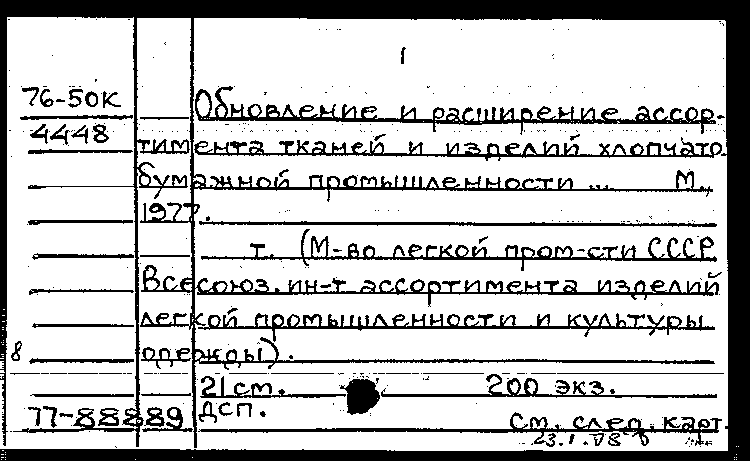 1
76-50К
4448
Обновление и расширение ассор-
тимента тканей и изделий хлопчато
бумажной промышленности ... М.,
1977.
т. (М-во легкой пром-сти СССР
Всесоюз. ин-т ассортимента изделий
легкой промышленности и культуры
8 одежды).
21 см. 200 экз.
77-88889 ДСП.
См. след. карт.